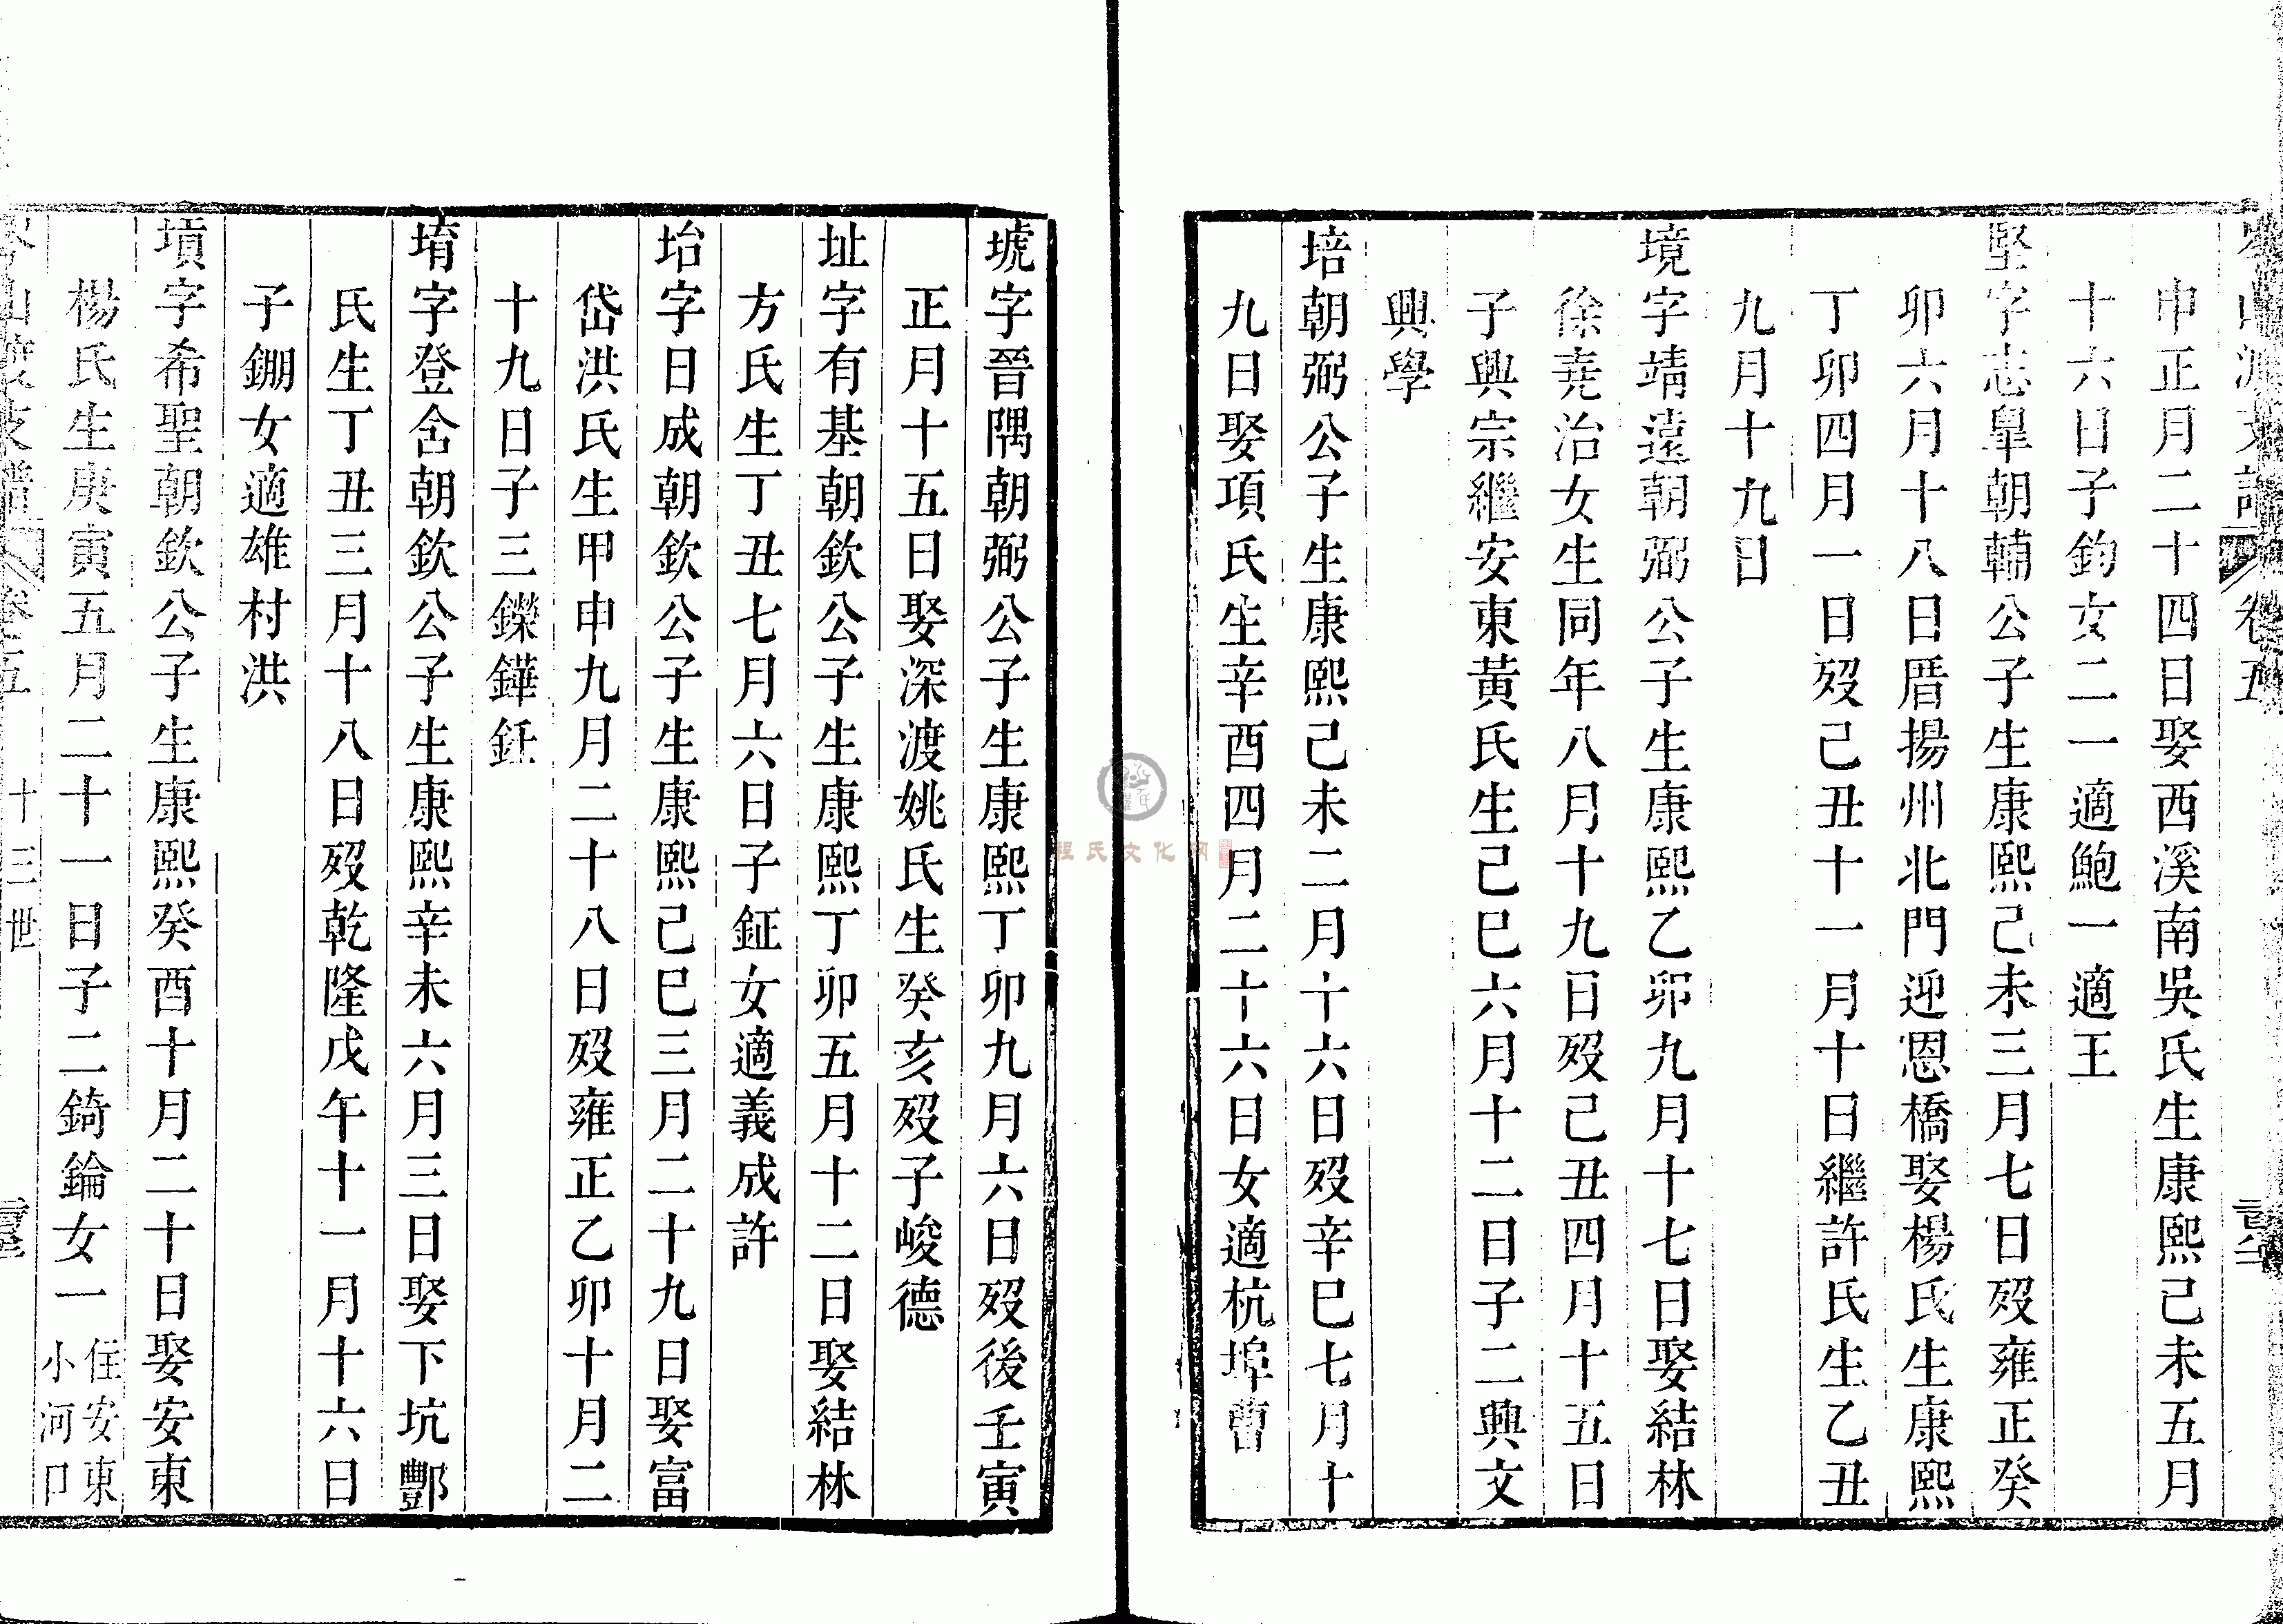 山渡支譜 卷五
申正月二十四日娶西溪南吳氏生康熙己未五月
十六日子鈞女二一適鮑一適王
堅字志臯朝輔公子生康熙己未三月七日歿雍正癸
卯六月十八日厝揚州北門迎恩橋娶楊氏生康熙
丁卯四月一日歿己丑十一月十日繼許氏生乙丑
九月十九日
境字靖遠朝弼公子生康熙乙卯九月十七日娶結林
徐堯治女生同年八月十九日歿己丑四月十五日
子興宗繼安東黃氏生己巳六月十二日子二興文
興學
培朝弼公子生康熙己未二月十六日歿辛巳七月十
九日娶項氏生辛酉四月二十六日女適杭埠曹
琥字晉隅朝弼公子生康熙丁卯九月六日歿後壬寅
正月十五日娶深渡姚氏生癸亥歿子峻德
址字有基朝欽公子生康熙丁卯五月十二日娶結林
方氏生丁丑七月六日子鉦女適義成許
坮字日成朝欽公子生康熙己巳三月二十九日娶富
岱洪氏生甲申九月二十八日歿雍正乙卯十月二
十九日子三鑠鏵鈺
堉字登含朝欽公子生康熙辛未六月三日娶下坑酆
氏生丁丑三月十八日歿乾隆戊午十一月十六日
子錋女適雄村洪
墳字希聖朝欽公子生康熙癸酉十月二十日娶安東
楊氏生庚寅五月二十一日子二錡錀女一 住安東小河口
山渡支譜 卷五 十三世
程氏文化网